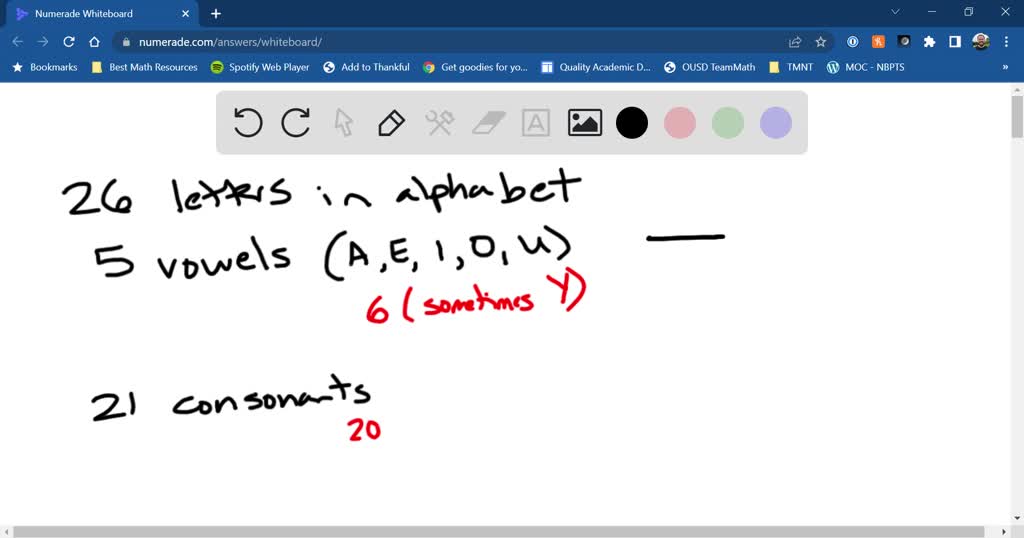 Numerade Whiteboard
numerade.com/answers/whiteboard/
Bookmarks Best Math Resources Spotify Web Player Add to Thankful Get goodies for yo... Quality Academic D... OUSD TeamMath TMNT MOC - NBPTS »
A
26 letters in alphabet
5 vowels (A, E, I, O, U)
6 (sometimes Y)
21 consonants
20